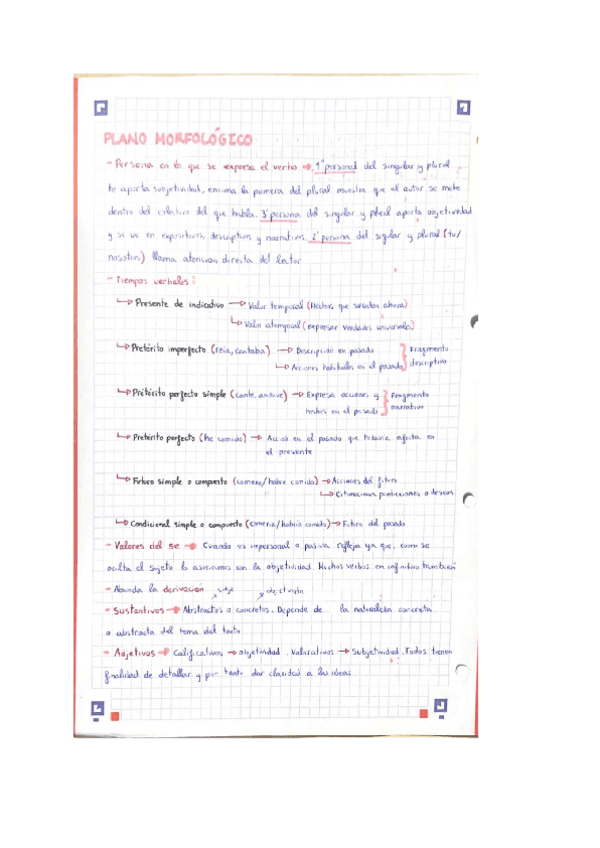 PLANO MORFOLÓGICO
- Persona en la que se expresa el verbo → 1ª persona del singular y plural
te aporta subjetividad, encima la primera del plural muestra que el autor se mete
dentro del colectivo del que habla. 3ª persona del singular y plural aporta objetividad
y se ve en expositivos, descriptivos y narrativos. 2ª persona del sigular y plural (tu/
vosotros) llama atencion directa del lector
- Tiempos verbales:
→ Presente de indicativo → Valor temporal (Hechos que suceden ahora)
→ Valor atemporal (expresar verdades universales)
→ Pretérito imperfecto (reía, cantaba) → Descripción en pasado } Fragmento
→ Acciones habituales en el pasado descriptivo
→ Pretérito perfecto simple (cante, anduve) → Expresa acciones y } Fragmento
hechos en el pasado narrativo
→ Pretérito perfecto (he comido) → Acción en el pasado que todavía afecta en
el presente
→ Futuro simple o compuesto (comeré/habre comido) → Acciones del futuro
→ predicciones o deseos
→ Condicional simple o compuesto (comería/habría comido) → Futuro del pasado
- Valores del se → Cuando es impersonal o pasiva refleja ya que, como se
oculta el sujeto lo asociamos con la objetividad. Muchos verbos en infinitivo también
- Abunda la derivación
- Sustantivos → Abstractos o concretos. Depende de la naturaleza concreta
o abstracta del tema del texto
- Adjetivos → Calificativos → objetividad. Valorativos → Subjetividad. Todos tienen
finalidad de detallar y por tanto dar claridad a las ideas